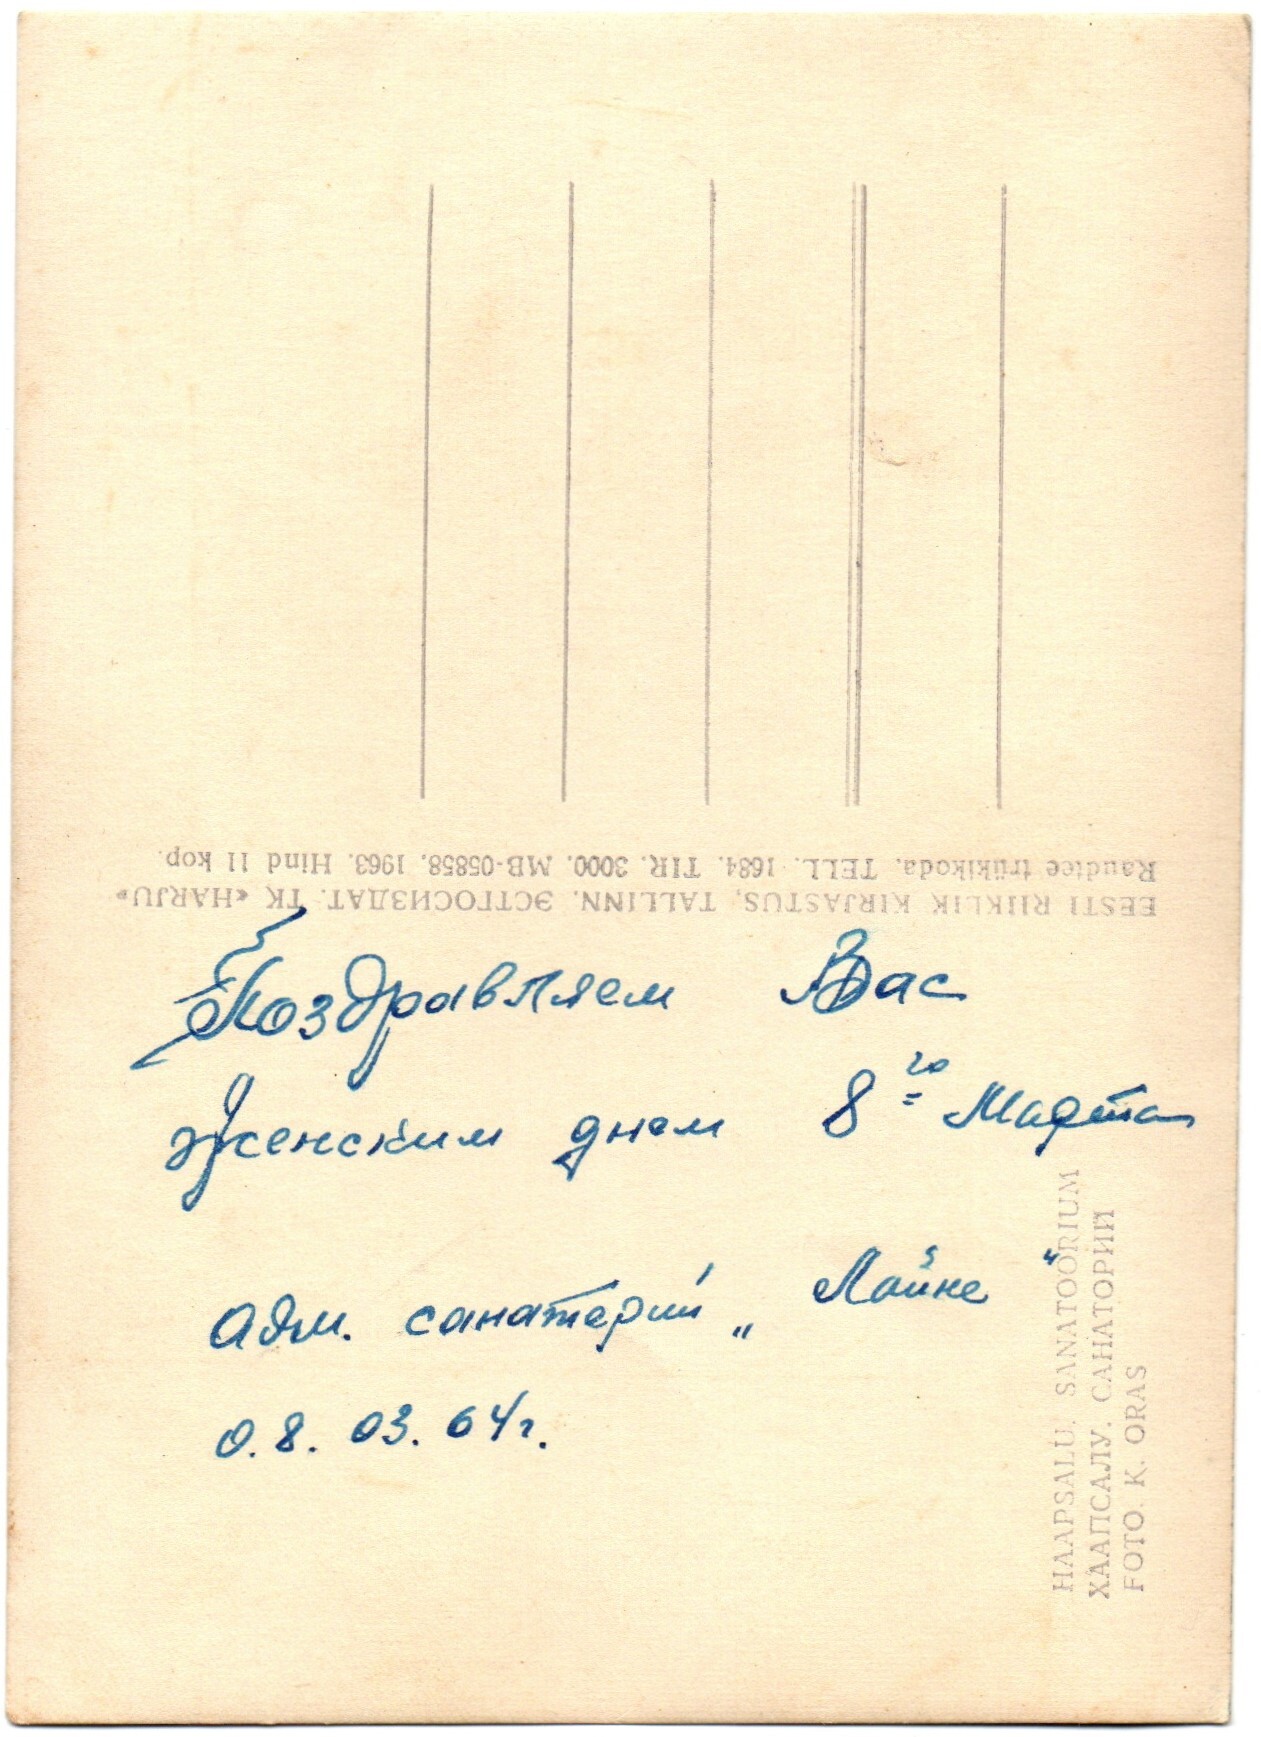 EESTI RIIKLIK KIRJASTUS, TALLINN. ЭСТГОСИЗДАТ. TK «HARJU»
Raudtee trükikoda. TELL. 1684. TIR. 3000. MB-05858. 1963. Hind 11 kop.
Поздравляем Вас
Женским днем 8го Марта
Адм. санаторий „Лайне"
0.8. 03. 64г.
HAAPSALU. SANATOORIUM
ХААПСАЛУ. САНАТОРИЙ
FOTO. K. ORAS